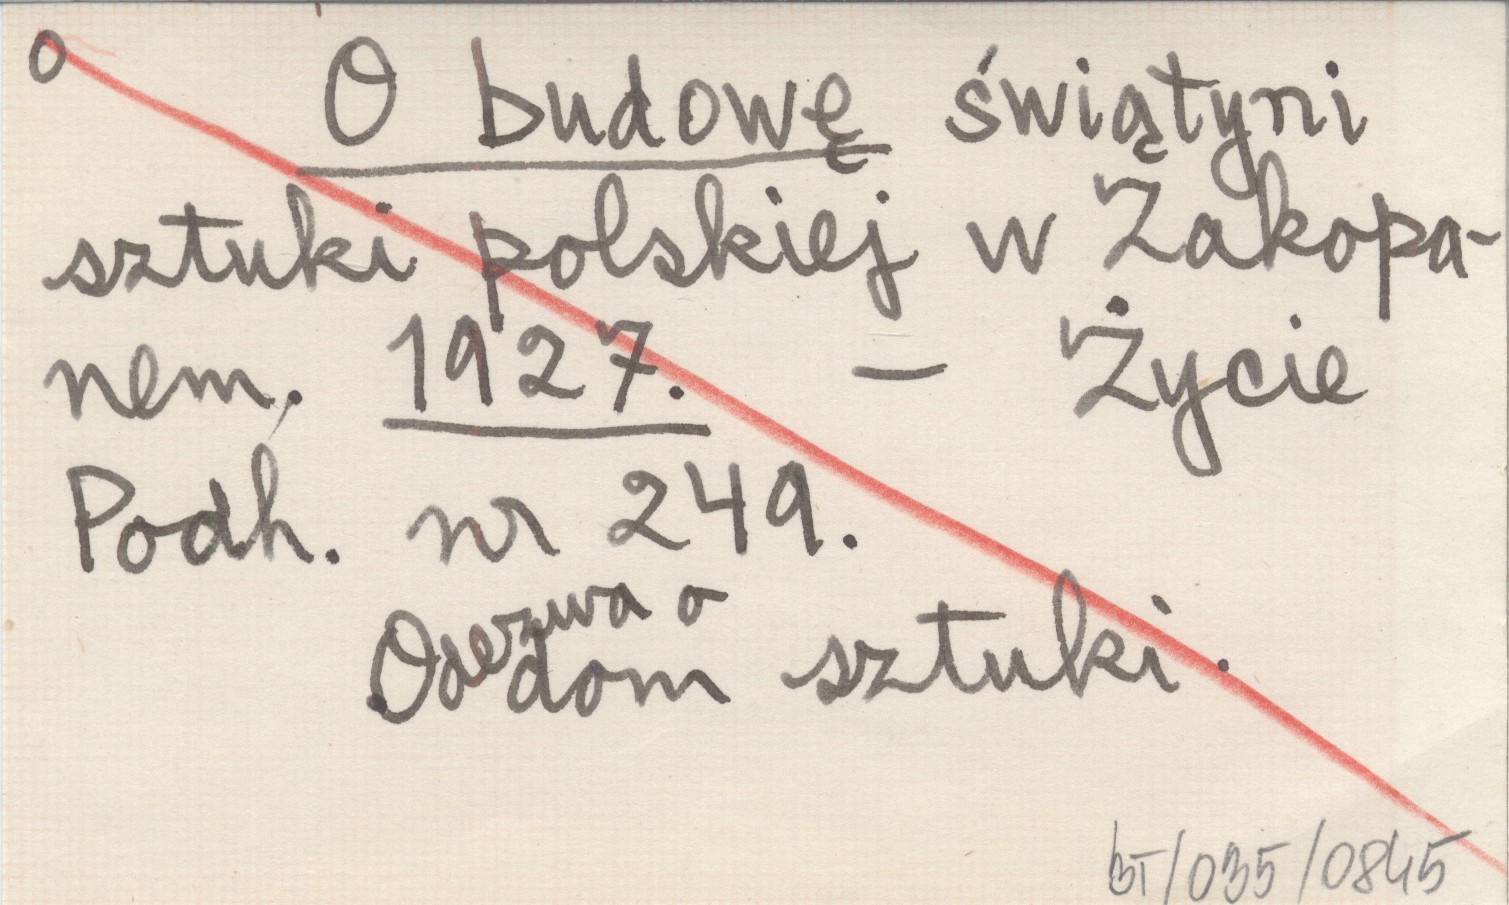 O O budowę świątyni
sztuki polskiej w Zakopa-
nem. 1927. – Życie
Podh. nr 249.
Odezwa o
dom sztuki.
BT/035/0845